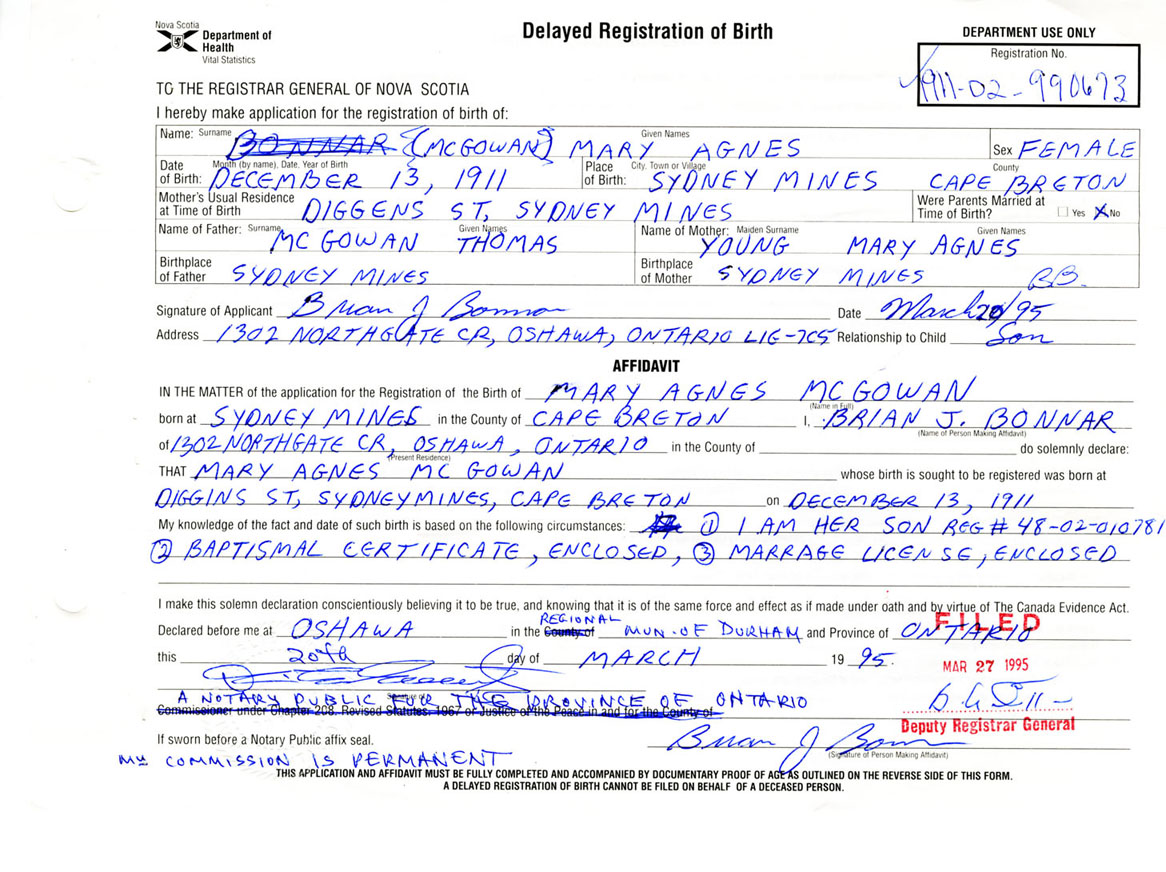 Nova Scotia
Department of
Health
Vital Statistics
Delayed Registration of Birth
DEPARTMENT USE ONLY
Registration No.
1911-02-990673
TO THE REGISTRAR GENERAL OF NOVA SCOTIA
I hereby make application for the registration of birth of:
Name: Surname Given Names
BONNAR (MCGOWAN) MARY AGNES Sex FEMALE
Date of Birth: Month (by name), Date, Year of Birth DECEMBER 13, 1911 Place of Birth: City, Town or Village SYDNEY MINES County CAPE BRETON
Mother's Usual Residence at Time of Birth DIGGENS ST, SYDNEY MINES Were Parents Married at Time of Birth? Yes X No
Name of Father: Surname Given Names MC GOWAN THOMAS Name of Mother: Maiden Surname Given Names YOUNG MARY AGNES
Birthplace of Father SYDNEY MINES Birthplace of Mother SYDNEY MINES BB.
Signature of Applicant Brian J Bonnar Date March 20/95
Address 1302 NORTHGATE CR, OSHAWA, ONTARIO L1G-7C5 Relationship to Child Son
AFFIDAVIT
IN THE MATTER of the application for the Registration of the Birth of MARY AGNES MCGOWAN
(Name in Full)
born at SYDNEY MINES in the County of CAPE BRETON I, BRIAN J. BONNAR
(Name of Person Making Affidavit)
of 1302 NORTHGATE CR, OSHAWA, ONTARIO in the County of do solemnly declare:
(Present Residence)
THAT MARY AGNES MC GOWAN whose birth is sought to be registered was born at
DIGGINS ST, SYDNEY MINES, CAPE BRETON on DECEMBER 13, 1911
My knowledge of the fact and date of such birth is based on the following circumstances: ① I AM HER SON REG # 48-02-010781
② BAPTISMAL CERTIFICATE, ENCLOSED, ③ MARRAGE LICENSE, ENCLOSED
I make this solemn declaration conscientiously believing it to be true, and knowing that it is of the same force and effect as if made under oath and by virtue of The Canada Evidence Act.
FILED
REGIONAL
Declared before me at OSHAWA in the County of MUN. OF DURHAM and Province of ONTARIO
this 20th day of MARCH 19 95.
MAR 27 1995
A NOTARY PUBLIC FOR THE PROVINCE OF ONTARIO
Commissioner under Chapter 208, Revised Statutes, 1967 or Justice of the Peace in and for the County of
Deputy Registrar General
If sworn before a Notary Public affix seal.
Brian J Bonnar
(Signature of Person Making Affidavit)
MY COMMISSION IS PERMANENT
THIS APPLICATION AND AFFIDAVIT MUST BE FULLY COMPLETED AND ACCOMPANIED BY DOCUMENTARY PROOF OF AGE AS OUTLINED ON THE REVERSE SIDE OF THIS FORM.
A DELAYED REGISTRATION OF BIRTH CANNOT BE FILED ON BEHALF OF A DECEASED PERSON.